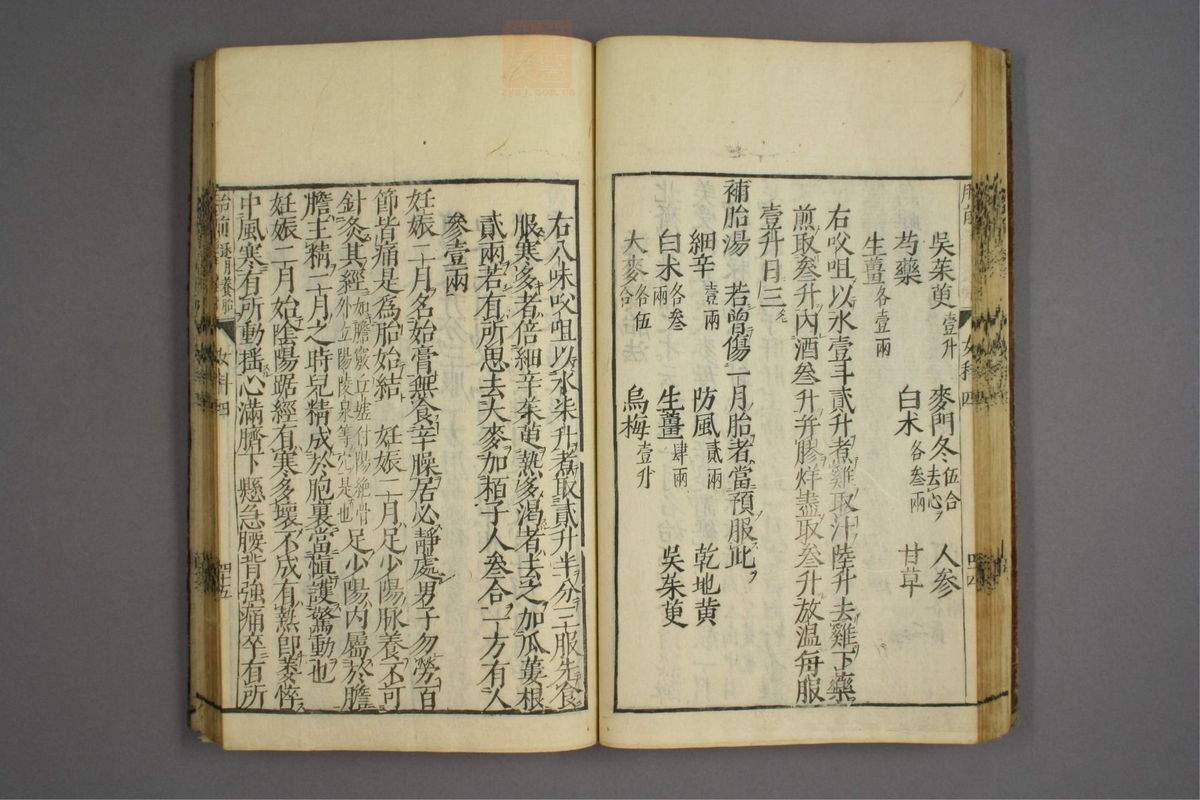 吳茱萸壹升 麥門冬伍合去心 人參
芍藥 白朮各叁兩 甘草
生薑各壹兩
右㕮咀以水壹斗貳升煮雞取汁陸升去雞下藥
煎取叁升內酒叁升并膠烊盡取叁升放温每服
壹升日三
補胎湯 若曾傷一月胎者當預服此
細辛壹兩 防風貳兩 乾地黄
白朮各叁兩 生薑肆兩 吳茱萸
大麥各伍合 烏梅壹升
右八味㕮咀以水柒升煮取貳升半分三服先食
服寒多者倍細辛茱萸熱多渴者去之加瓜蔞根
貳兩若有所思去大麥加栢子人叁合一方有人
參壹兩
妊娠二十月名始膏無食辛臊居必靜處男子勿勞百
節皆痛是為胎始結 妊娠二月足少陽脉養不可
針灸其經如膽竅丘墟付陽絶骨外立陽陵泉等穴是也足少陽内屬於膽
膽主精二十月之時兒精成於胞裏當慎護驚動也
妊娠二月始陰陽踞經有寒多壞不成有熱即萎悴
中風寒有所動搖心滿臍下懸急腰背強痛卒有所
胎前 逐月養胎 女科四 四十五
女科 四